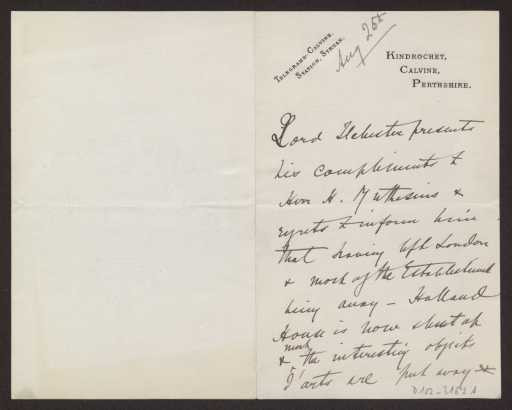 Telegrams-Calvine.
Station, Struan.
Aug 25th
Kindrochet,
Calvine,
Perthshire.
Lord Ilchester presents
his compliments to
Herr H. Muthesius &
regrets to inform him
that having left London
& most of the Establishment
being away - Holland
House is now shut up
& most
the interesting objects
d'arts are put away &